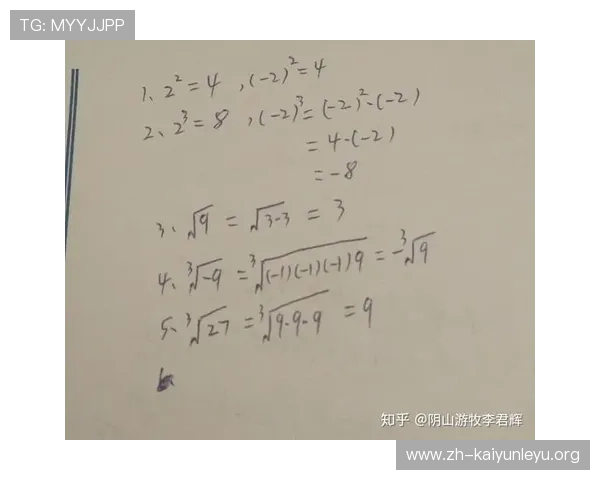 TG: MYYJJPP
1、2²=4 ,(-2)²=4
2、2³=8 ,(-2)³=(-2)²·(-2)
=4·(-2)
=-8
3、√9 = √3·3 = 3
4、³√-9 = ³√(-1)(-1)(-1)9 = -³√9
5、³√27 = ³√9·9·9 = 9
知乎 @阴山游牧李君辉
www.zh-kaiyunleyu.org